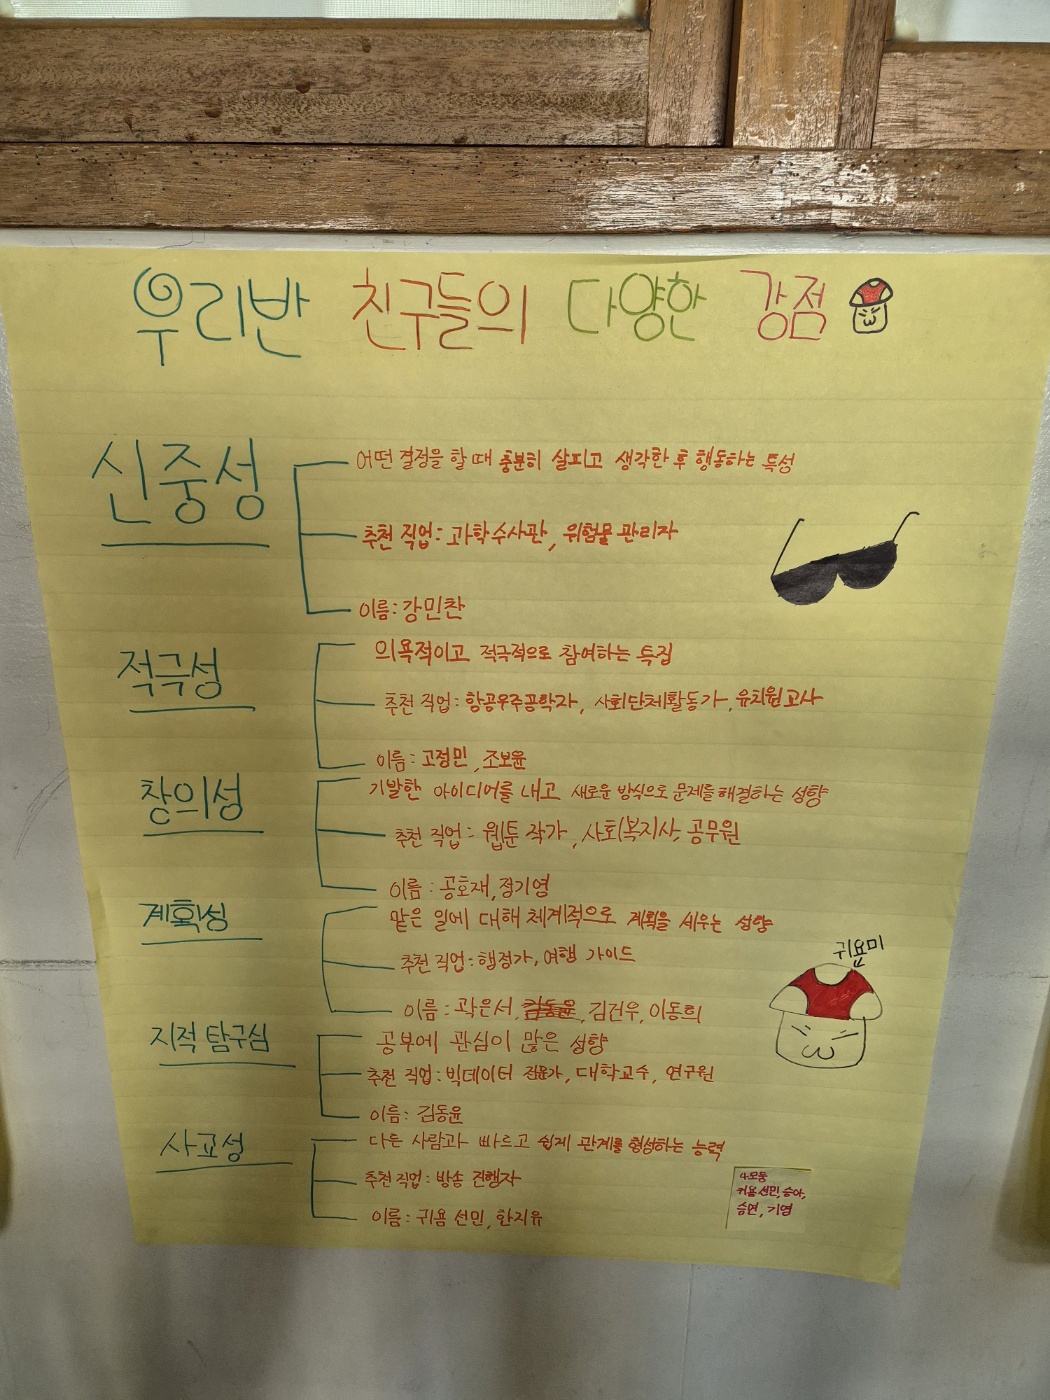 우리반 친구들의 다양한 강점
신중성
어떤 결정을 할 때 충분히 살피고 생각한 후 행동하는 특성
추천 직업: 과학수사관, 위험물 관리자
이름: 강민찬
적극성
의욕적이고 적극적으로 참여하는 특징
추천 직업: 항공우주공학자, 사회단체활동가, 유치원교사
이름: 고정민, 조보윤
창의성
기발한 아이디어를 내고 새로운 방식으로 문제를 해결하는 성향
추천 직업: 웹툰 작가, 사회복지사, 공무원
이름: 공호재, 정기영
계획성
맡은 일에 대해 체계적으로 계획을 세우는 성향
추천 직업: 행정가, 여행 가이드
이름: 곽은서, 김동윤, 김건우, 이동희
지적 탐구심
공부에 관심이 많은 성향
추천 직업: 빅데이터 전문가, 대학교수, 연구원
이름: 김동윤
사교성
다른 사람과 빠르고 쉽게 관계를 형성하는 능력
추천 직업: 방송 진행자
이름: 귀욤 선민, 한지유
귀요미
4모둠
귀욤 선민, 승아,
승연, 기영